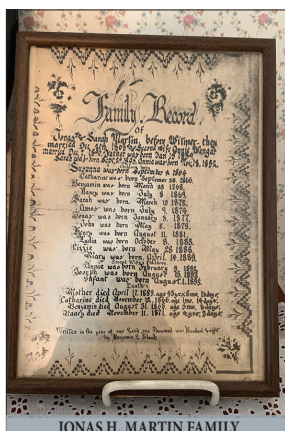 Family Record
of
Jonas & Sarah Martin, before Witmer, they
married Dec. 1869. Second wife Annie Horning
married Dec. 1890. Father was born Jan. 18
Sarah was born Sept. 1845. Anna was born Nov. 13, 1852.
Susanna was born September 6, 1864
Catharine was born September 28, 1866.
Benjamin was born March 28, 1868.
Nancy was born July 8, 1869.
Sarah was born March 10, 1872.
Amos was born July 9, 1874.
Jonas was born January 3, 1877.
John was born May 8, 1879.
Henry was born August 11, 1881.
Lydia was born October 8, 1883.
Lizzie was born May 28, 1886.
Mary was born April 14, 1889.
Second Wife's Children
Annie was born February 9, 1892
Joseph was born August 15, 1893
Infant was born August 1, 1895.
Deaths
Mother died April 17, 1889. age 43yrs. 6mo. 18days
Catharine died November 12, 1866. age 1mo. 14days
Benjamin died August 31, 1868. age 5mo. 3days
Nancy died November 11, 1871. age 2yrs. 3days
Written in the year of our Lord one thousand nine hundred eight
by Benjamin
JONAS H. MARTIN FAMILY